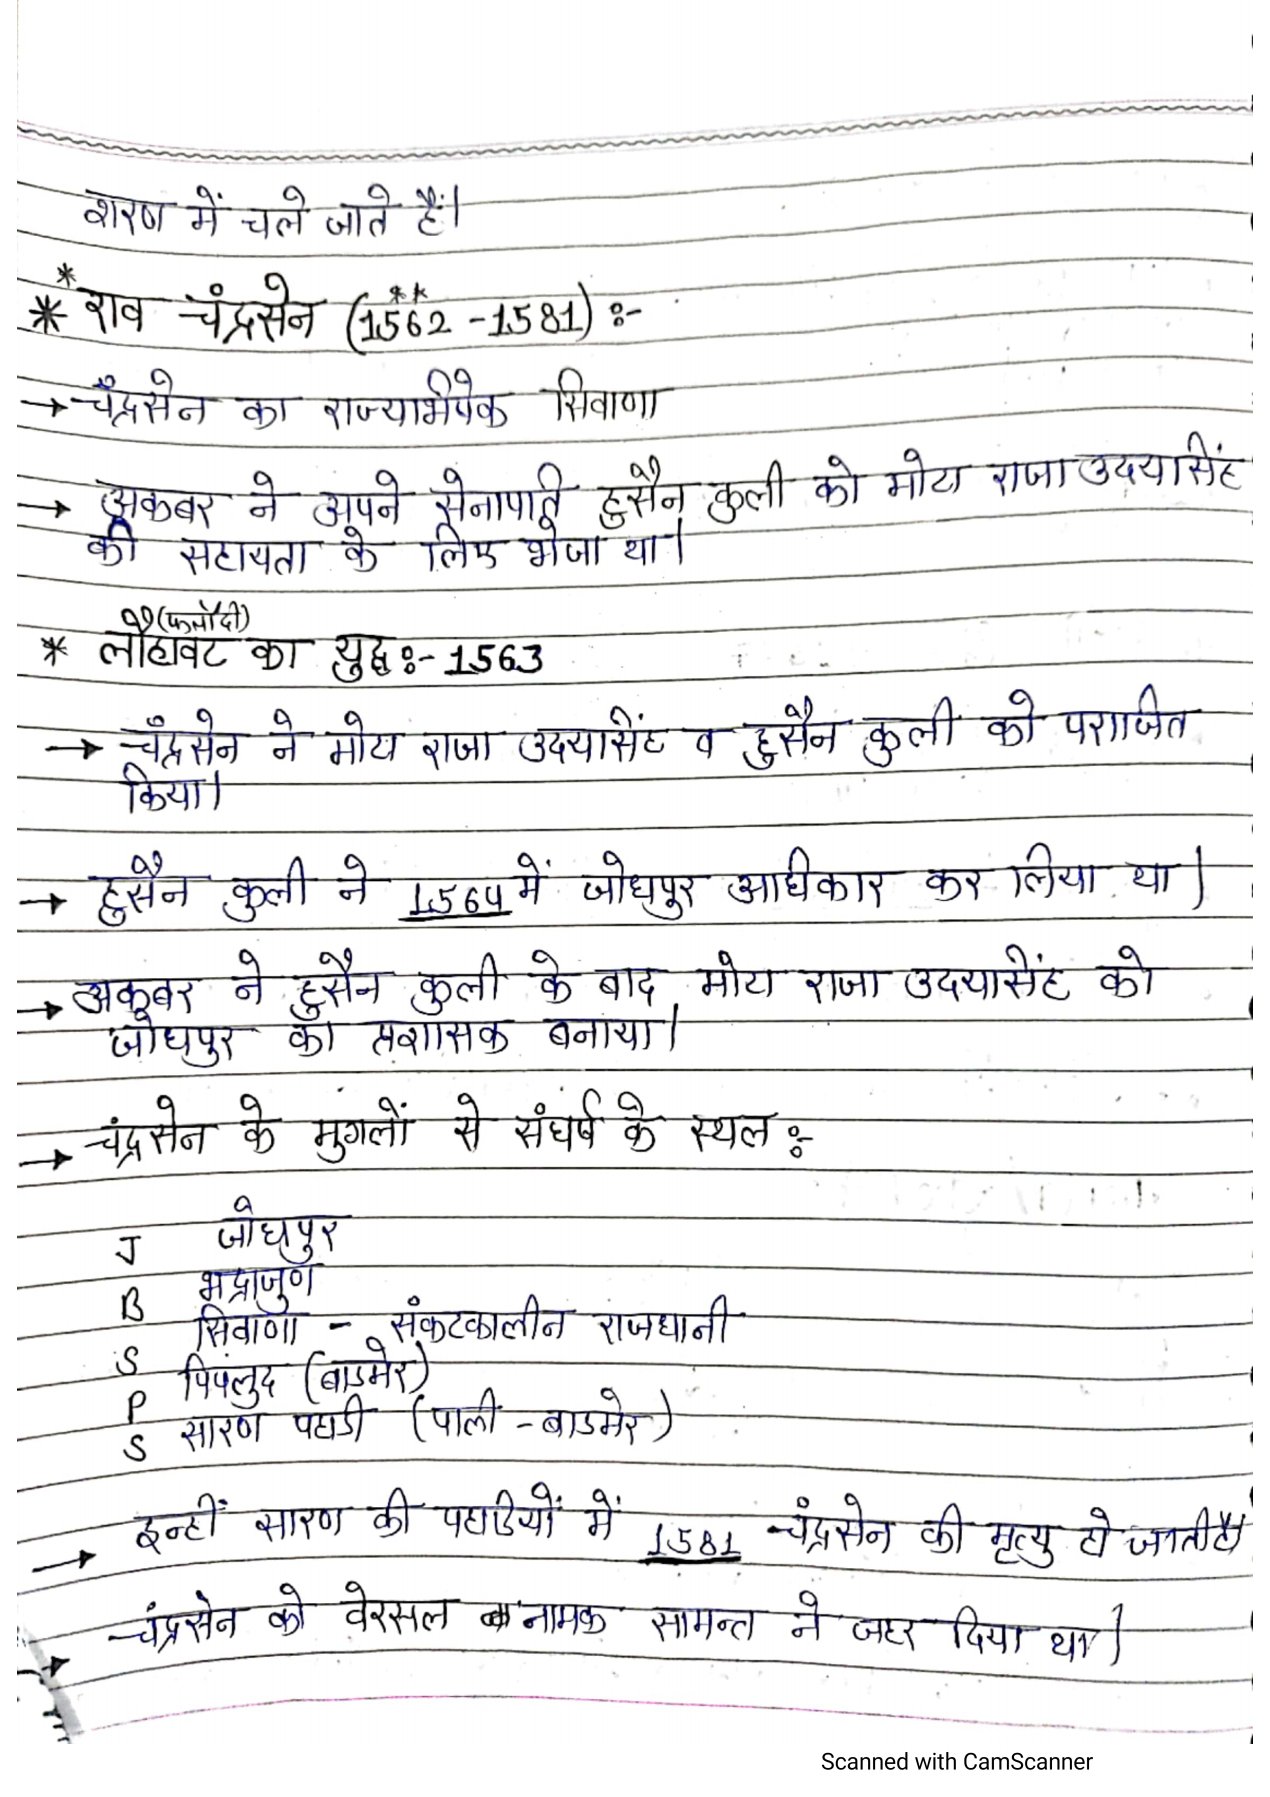 शरण में चले जाते हैं।
** राव चंद्रसेन (1562 - 1581) :-
→ चंद्रसेन का राज्याभिषेक सिवाणा
→ अकबर ने अपने सेनापति हुसैन कुली को मोटा राजा उदयसिंह
की सहायता के लिए भेजा था।
(फलौदी)
* लौहावट का युद्ध :- 1563
→ चंद्रसेन ने मोटा राजा उदयसिंह व हुसैन कुली को पराजित
किया।
→ हुसैन कुली ने 1564 में जोधपुर अधिकार कर लिया था।
→ अकबर ने हुसैन कुली के बाद मोटा राजा उदयसिंह को
जोधपुर का प्रशासक बनाया।
→ चंद्रसेन के मुगलों से संघर्ष के स्थल :-
J जोधपुर
B भद्राजुण
S सिवाणा - संकटकालीन राजधानी
P पिपलुद (बाडमेर)
S सारण पहाडी (पाली - बाडमेर)
→ इन्हीं सारण की पहाडियों में 1581 चंद्रसेन की मृत्यु हो जाती है।
→ चंद्रसेन को वेरसल नामक सामन्त ने जहर दिया था।
Scanned with CamScanner